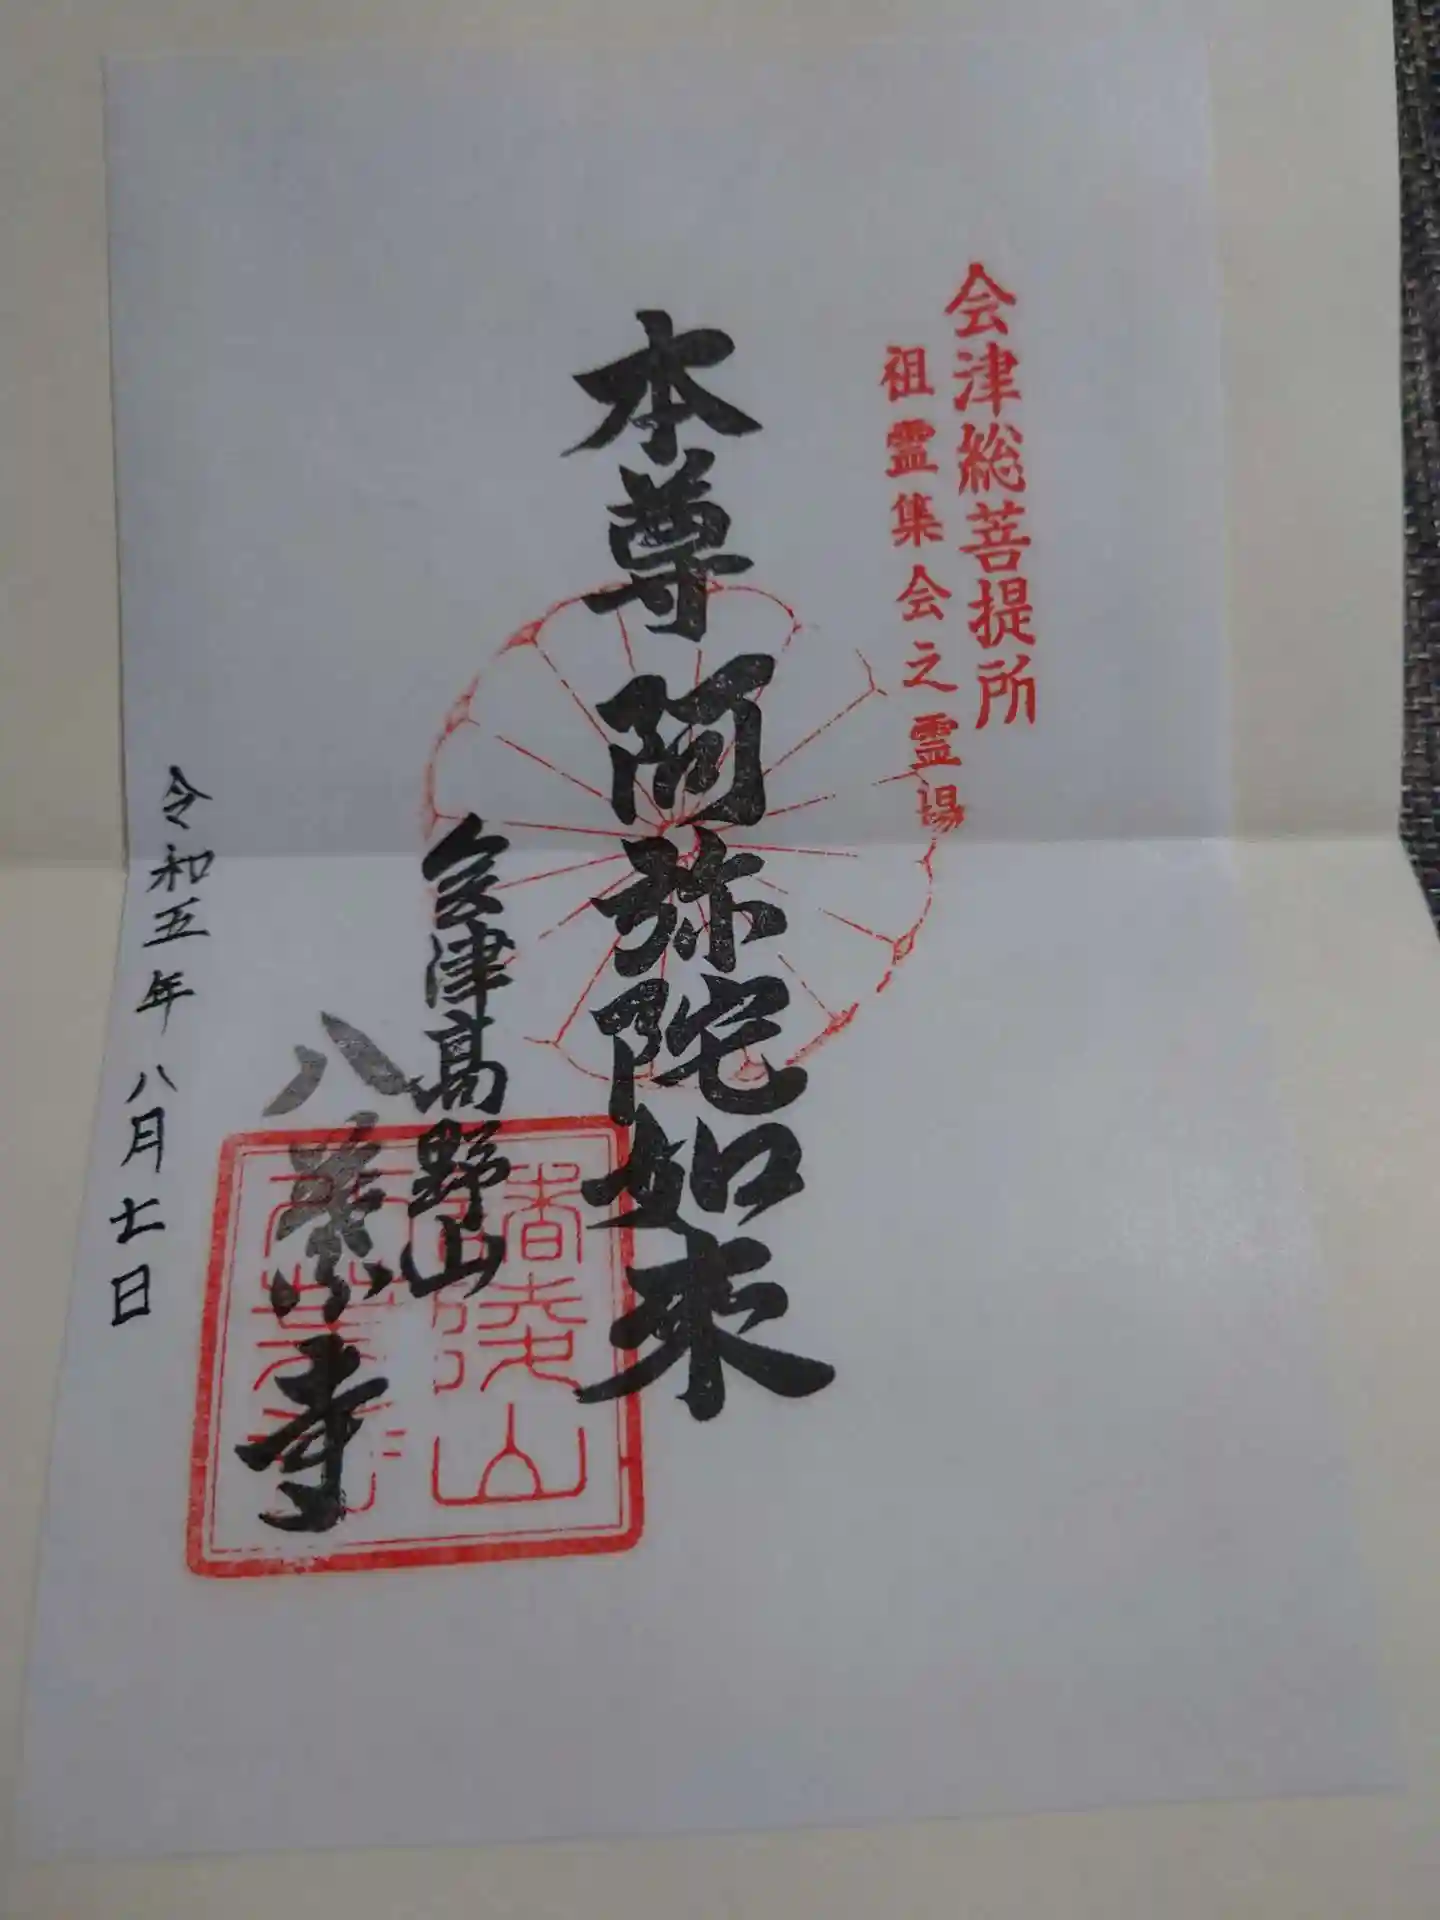 会津総菩提所
祖霊集会之霊場
本尊 阿弥陀如来
会津高野山
八葉寺
令和五年 八月七日